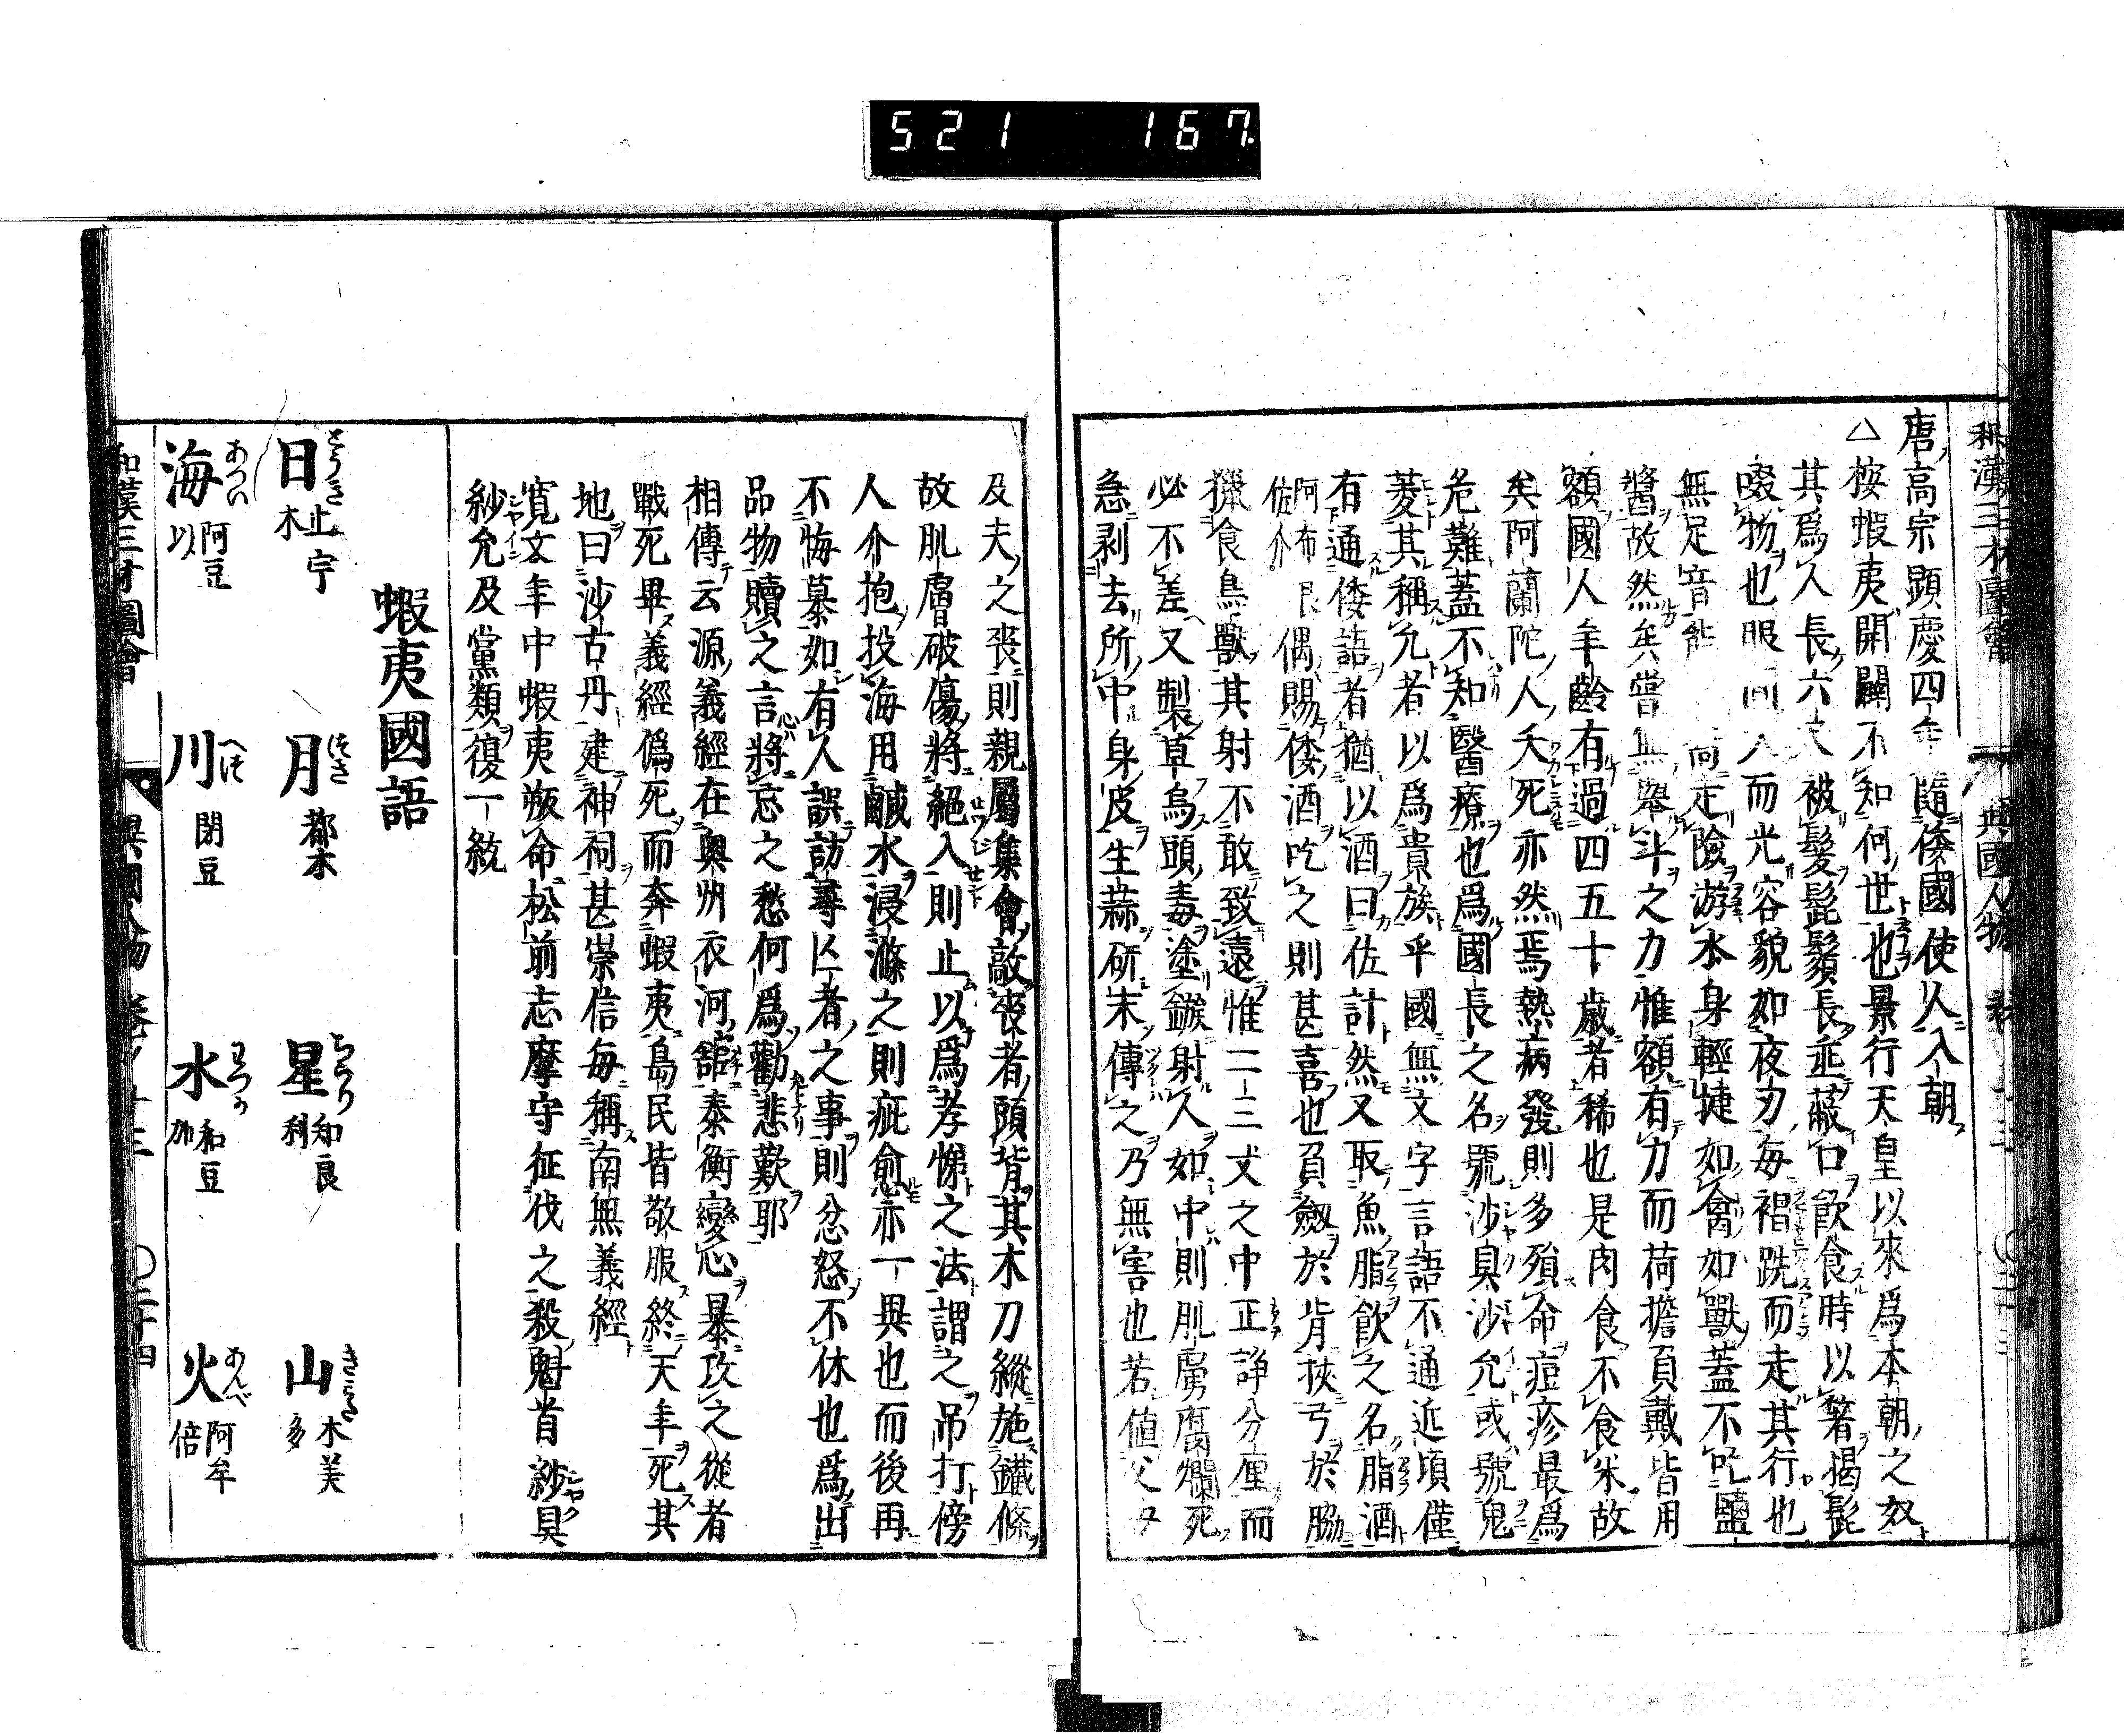 521 167
和漢三才圖會 異國人物 卷ノ十三
唐高宗顕慶四年隨倭國使人入朝
△按蝦夷開闢不知何世也景行天皇以來爲本朝之奴
其爲人長六尺被髮髭鬚長垂蔽口飮食時以箸揭髭
啜物也眼而光容貌如夜刃毎褶跣而走其行也
無足音能走險游水身輕捷如禽如獸蓋不吃鹽
醬故然矣嘗無舉斗之力惟額有力而荷擔負戴皆用
額國人年齡有過四五十歲者稀也是肉食不食米故
矣阿蘭陀人夭死亦然焉熱病發則多殞命痘疹最爲
危難蓋不知醫療也爲國長之名號沙具沙允或號鬼
菱其稱允者以爲貴族乎國無文字言語不通近頃僅
有通倭語者猶以酒曰佐計然又取魚脂飮之名脂酒
阿布良佐介偶賜倭酒吃之則甚喜也負劔於背挾弓於脇
獵食鳥獸其射不敢致遠惟二三丈之中正諍分厘而
必不差又製草烏頭毒塗鏃射人如中則肌膚腐爛死
急剥去所中身皮生蒜研末傳之乃無害也若値父母
及夫之喪則親屬集會敵喪者頭背其木刀縱施鐵條
故肌膚破傷將絕入則止以爲孝悌之法謂之吊打傍
人介抱投海用鹹水浸滌之則疵愈亦一異也而後再
不悔慕如有人誤訪尋亡者之事則忿怒不休也爲出
品物贖之言將忘之愁何爲勸悲歎耶
相傳云源義經在奧州衣河舘泰衡變心暴攻之從者
戰死畢義經僞死而奔蝦夷島民皆敬服終天年死其
地曰沙古丹建神祠甚崇信毎稱南無義經
寛文年中蝦夷叛命松前志摩守征伐之殺魁首紗具
紗允及黨類復一統
蝦夷國語
日 とうき 止宇木
月 つき 都木
星 ちらり 知良利
山 きみた 木美多
海 あつい 阿豆以
川 へつ 閉豆
水 わつか 和豆加
火 あんべ 阿牟倍
和漢三才圖會 異國人物 卷ノ十三 〇二十四